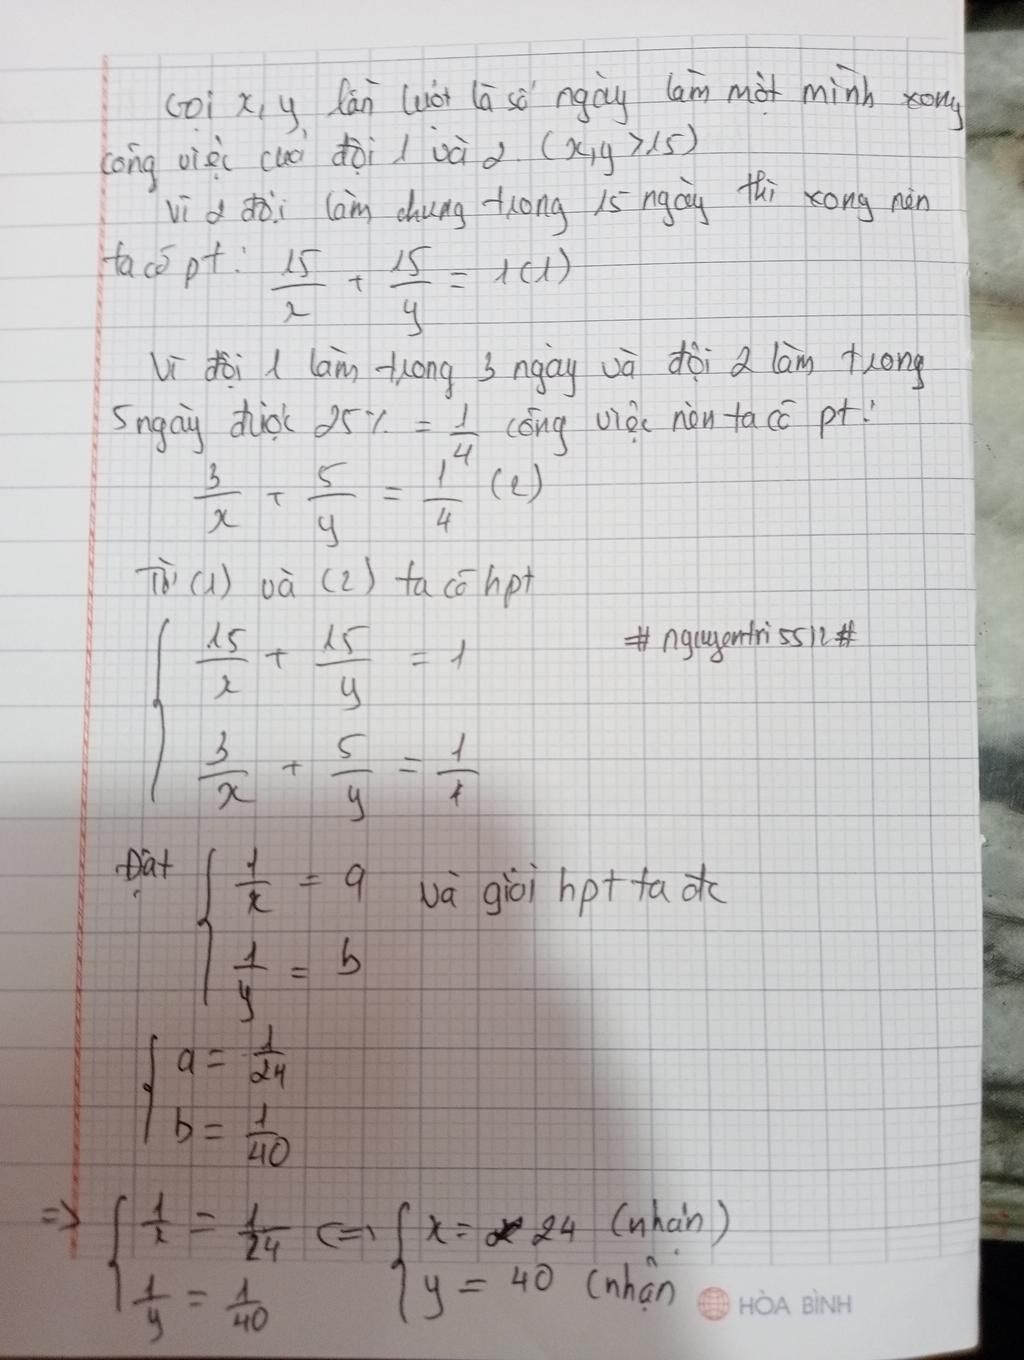 Gọi x, y lần lượt là số ngày làm một mình xong
công việc của đội 1 và 2. (x,y >15)
Vì 2 đội làm chung trong 15 ngày thì xong nên
ta có pt: 15/x + 15/y = 1 (1)
Vì đội 1 làm trong 3 ngày và đội 2 làm trong
5 ngày được 25% = 1/4 công việc nên ta có pt:
3/x + 5/y = 1/4 (2)
Từ (1) và (2) ta có hpt
15/x + 15/y = 1
#nguyentri5512#
3/x + 5/y = 1/4
Đặt { 1/x = a và giải hpt ta đc
1/y = b
{ a = 1/24
b = 1/40
=> { 1/x = 1/24 <=> { x = 24 (nhận)
1/y = 1/40 y = 40 (nhận)
HÒA BÌNH